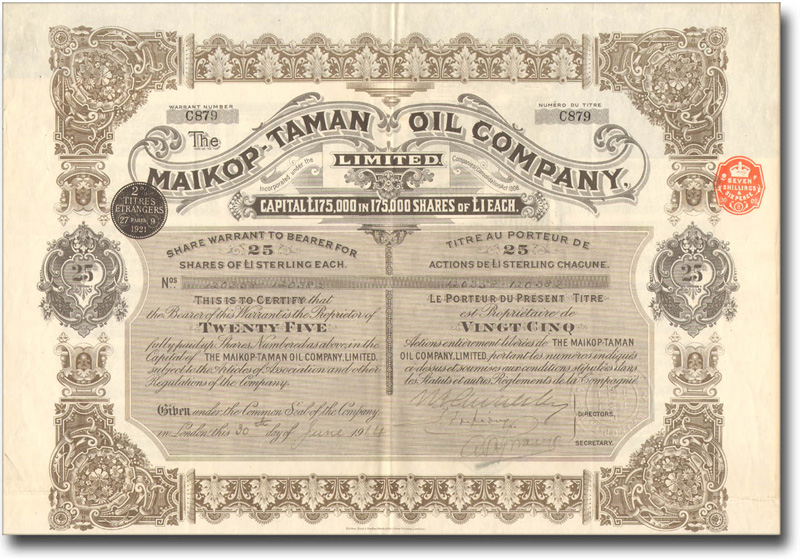 WARRANT NUMBER
C879
NUMÉRO DU TITRE
C879
The
MAIKOP-TAMAN OIL COMPANY,
LIMITED
Incorporated under the Companies (Consolidation) Act 1908.
CAPITAL £175,000 IN 175,000 SHARES OF £1 EACH.
2%
TITRES
ETRANGERS
27 PARIS 9
1921
SEVEN
SHILLINGS
& SIX PENCE
25
25
SHARE WARRANT TO BEARER FOR
25
SHARES OF £1 STERLING EACH.
Nos
THIS IS TO CERTIFY that
the Bearer of this Warrant is the Proprietor of
TWENTY FIVE
fully paid up Shares Numbered as above, in the
Capital of THE MAIKOP-TAMAN OIL COMPANY, LIMITED,
subject to the Articles of Association and other
Regulations of the Company.
Given under the Common Seal of the Company
in London this 30th day of June 1914
TITRE AU PORTEUR DE
25
ACTIONS DE £1 STERLING CHACUNE.
LE PORTEUR DU PRESENT TITRE
est Propriétaire de
VINGT CINQ
Actions entièrement libérées de THE MAIKOP-TAMAN
OIL COMPANY, LIMITED, portant les numéros indiqués
ci-dessus et soumises aux conditions stipulées dans
les Statuts et autres Règlements de la Compagnie
DIRECTORS.
SECRETARY.